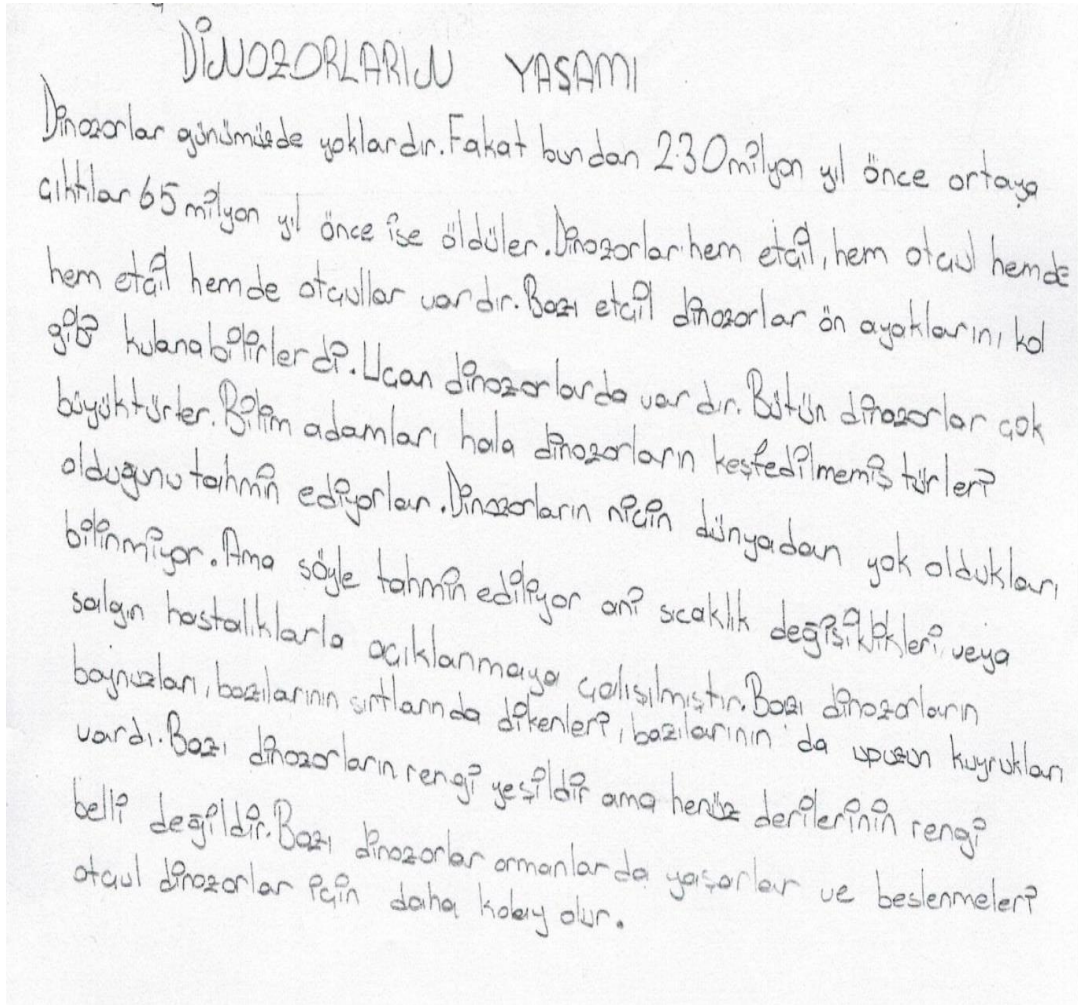 DİNOZORLARIN YAŞAMI
Dinozorlar günümüzde yoklardır. Fakat bundan 230 milyon yıl önce ortaya
çıktılar 65 milyon yıl önce ise öldüler. Dinozorlar hem etçil, hem otçul hemde
hem etçil hemde otçullar vardır. Bazı etçil dinozorlar ön ayaklarını kol
gibi kulanabilirlerdi. Uçan dinozorlarda vardır. Bütün dinozorlar çok
büyüktürler. Bilim adamları hala dinozorların keşfedilmemiş türleri
olduğunu tahmin ediyorlar. Dinozorların niçin dünyadan yok oldukları
bilinmiyor. Ama söyle tahmin ediliyor ani sıcaklık değişiklikleri, veya
salgın hastalıklarla açıklanmaya çalışılmıştır. Bazı dinozorların
boynuzları, bazılarının sırtlarında dikenleri, bazılarının da upuzun kuyrukları
vardı. Bazı dinozorların rengi yeşildir ama henüz derilerinin rengi
belli değildir. Bazı dinozorlar ormanlarda yaşarlar ve beslenmeleri
otçul dinozorlar için daha kolay olur.